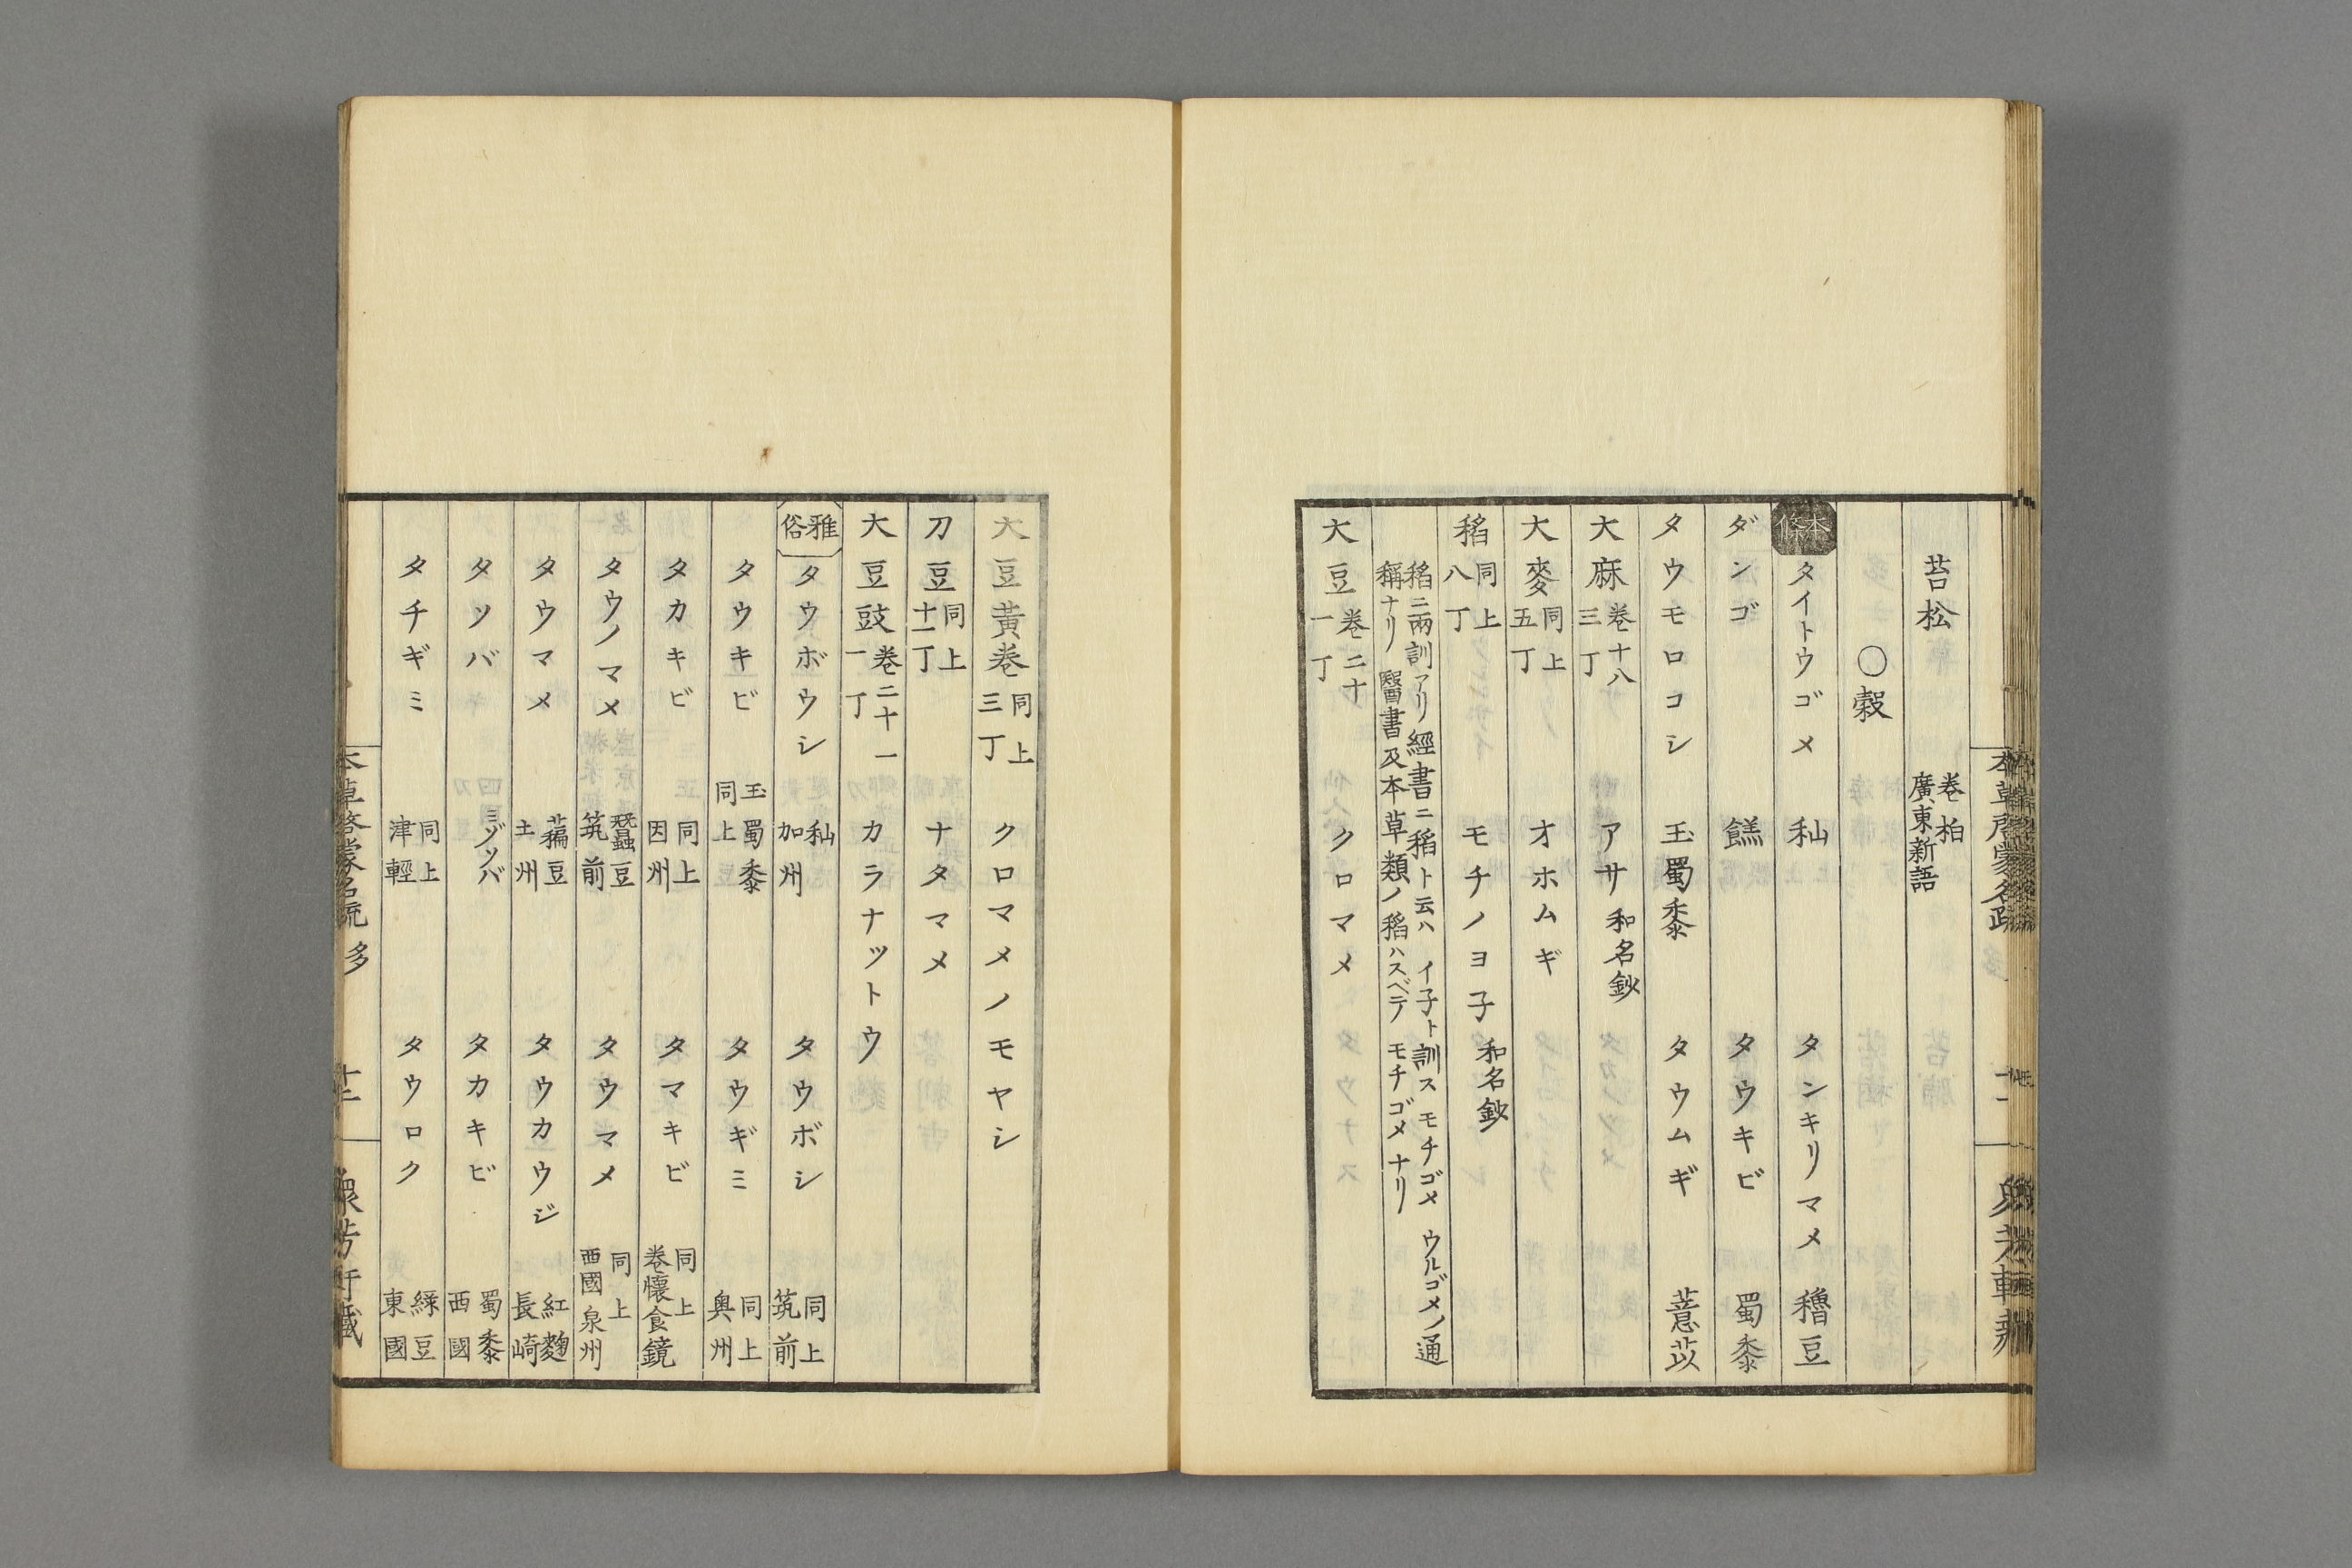 苔松　卷柏　廣東新語
○穀
本條　タイトウゴメ　秈　タンキリマメ　穭豆
ダンゴ　餻　タウキビ　蜀黍
タウモロコシ　玉蜀黍　タウムギ　薏苡
大麻　卷十八　三丁　アサ　和名鈔
大麥　同上　五丁　オホムギ
稻　同上　八丁　モチノヨ子　和名鈔
稻ニ兩訓アリ經書ニ稻ト云ハイ子ト訓スモチゴメウルゴメノ通
稱ナリ醫書及本草類ノ稻ハスベテモチゴメナリ
大豆　卷二十　一丁　クロマメ
大豆黃卷　同上　三丁　クロマメノモヤシ
刀豆　同上　十一丁　ナタマメ
大豆豉　卷二十一　一丁　カラナットウ
雅俗　タウボウシ　秈　加州　タウボシ　同上　筑前
タウキビ　玉蜀黍　同上　タウギミ　同上　奥州
タカキビ　同上　因州　タマキビ　同上　卷懷食鏡
タウノマメ　豆　筑前　タウマメ　同上　西國　泉州
タウマメ　藊豆　土州　タウカウジ　紅麴　長崎
タソバ　ミゾソバ　タカキビ　蜀黍　西國
タチギミ　同上　津輕　タウロク　綠豆　東國
本草啓蒙名疏　多　十二